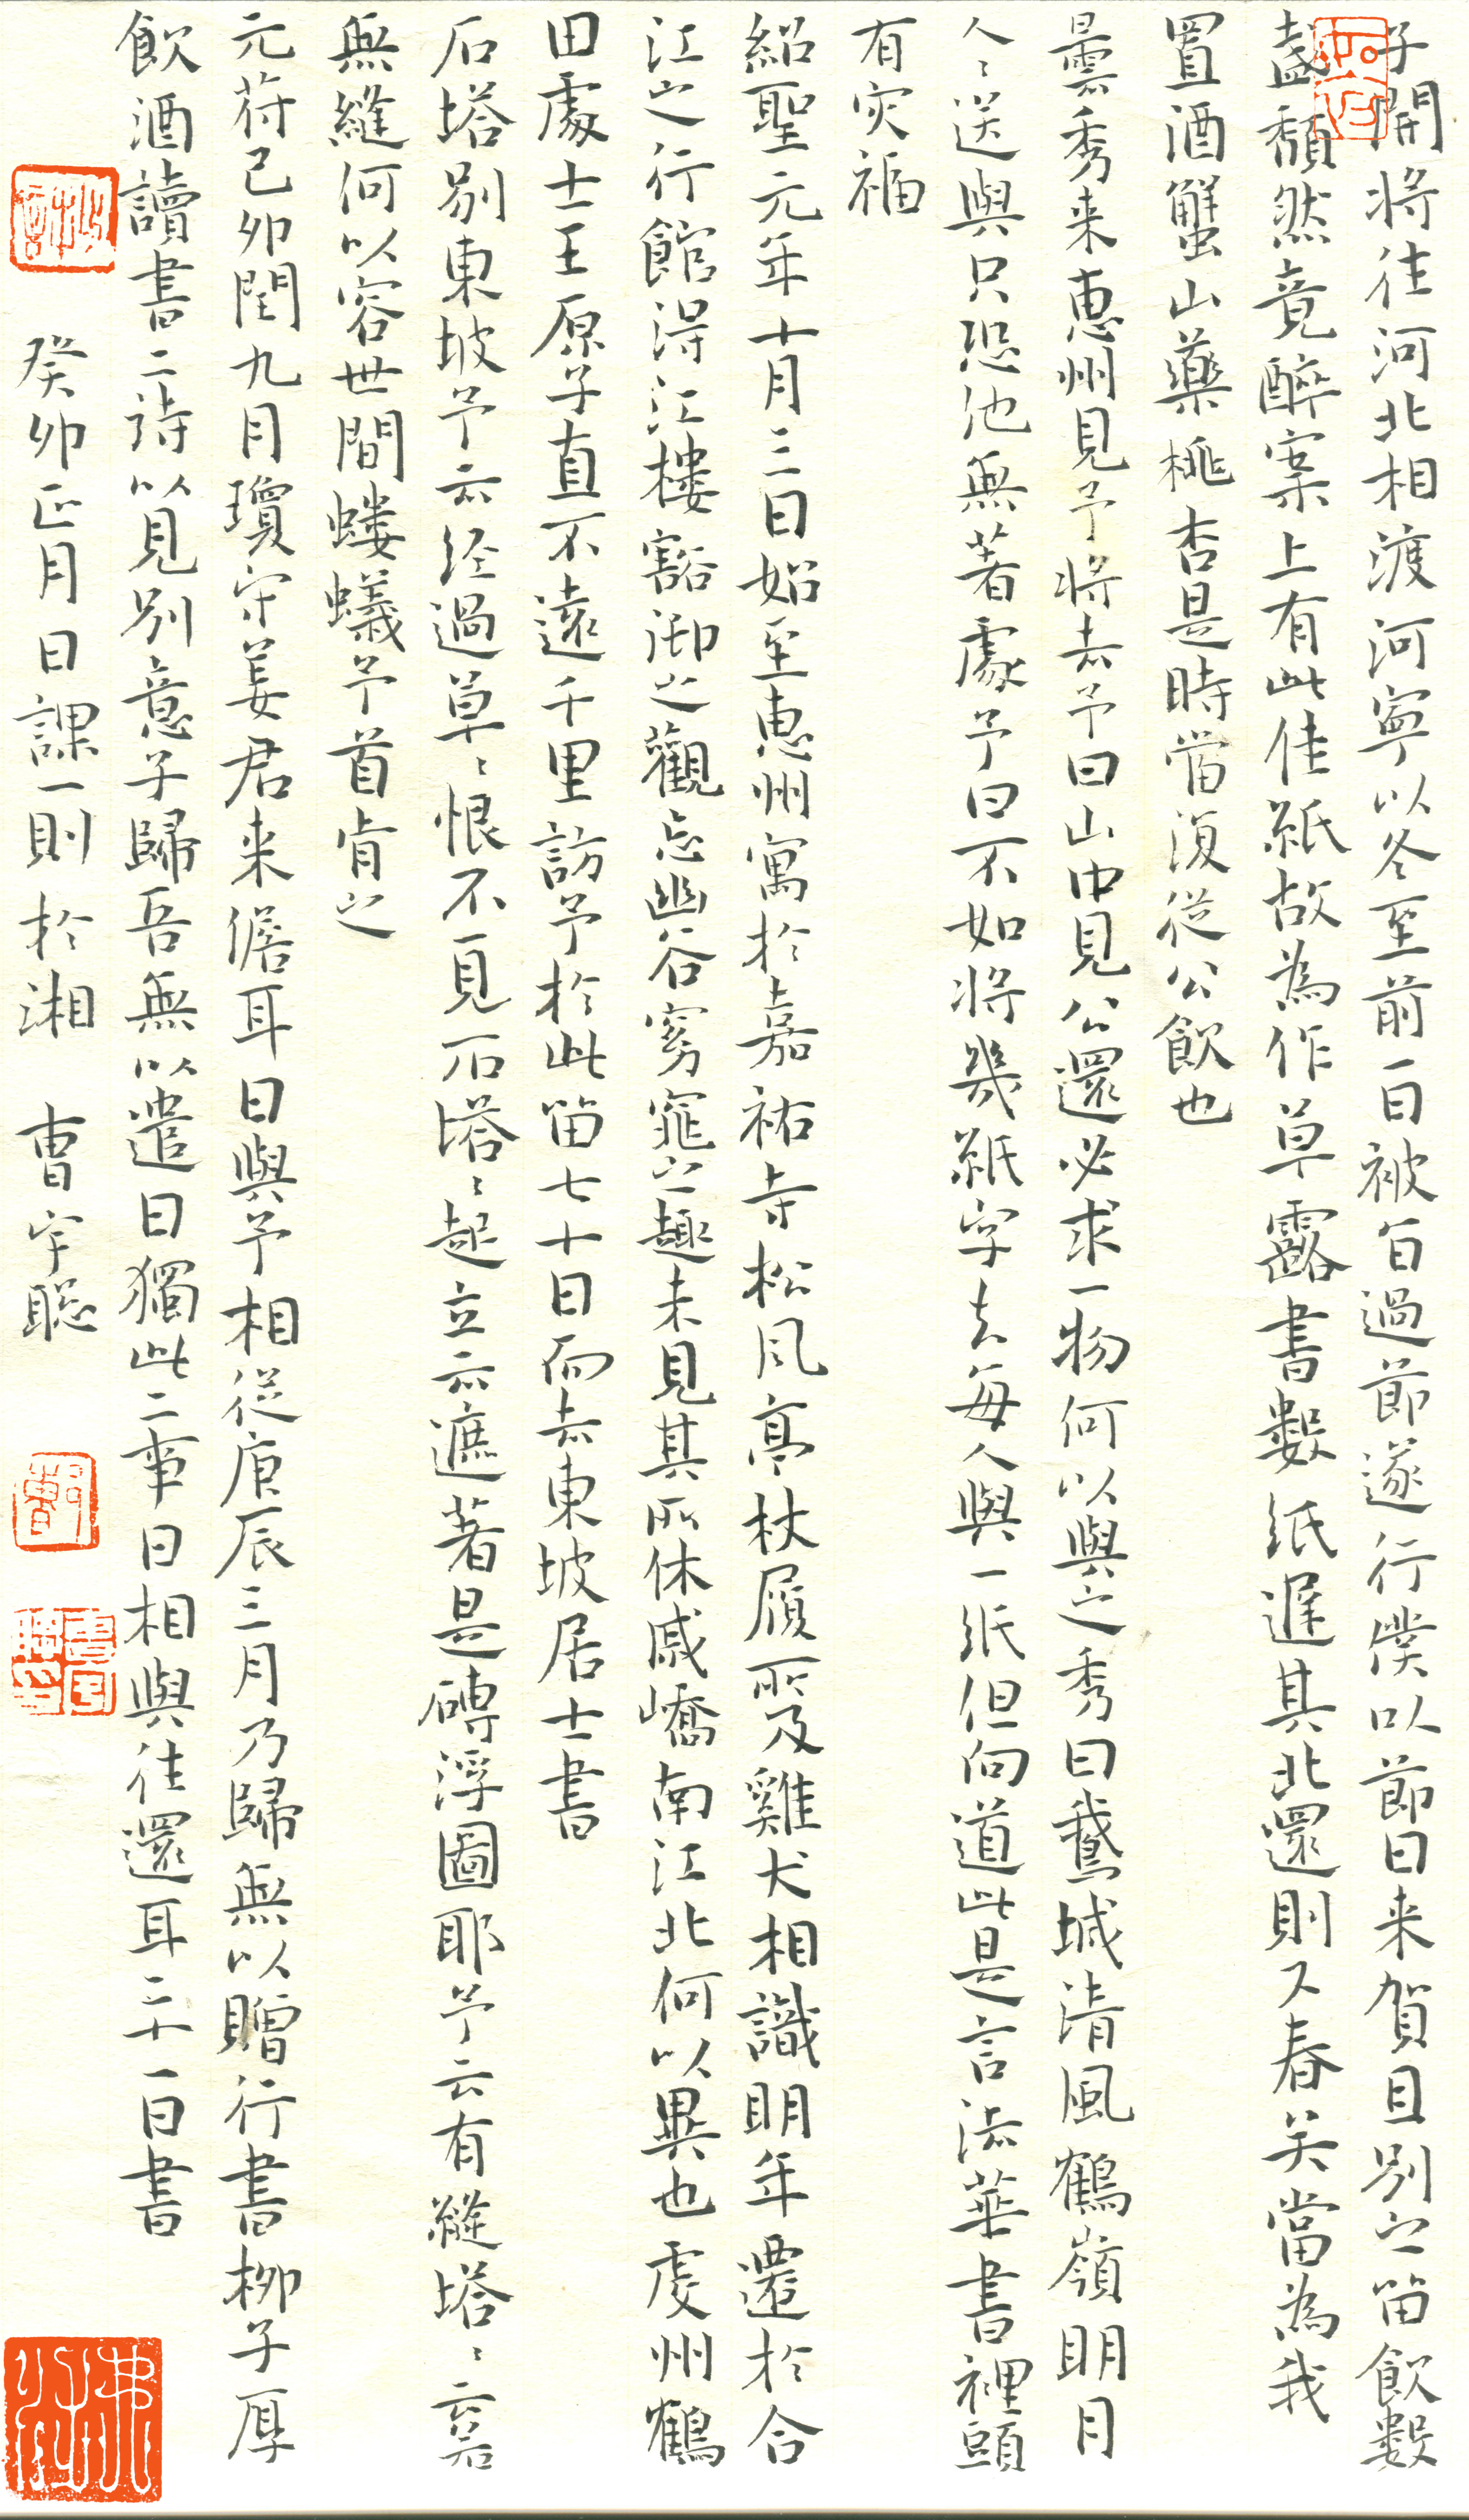 子開將往河北相渡河寧以冬至前一日被旨過節遂行僕以節日来賀且別之留飲數
盞頹然竟醉案上有此佳紙故為作草露書數紙遲其北還則又春矣當為我
置酒蟹山藥桃杏是時當復從公飲也
曇秀来惠州見予將去予曰山中見公還必求一物何以與之秀曰鵞城清風鶴嶺明月
人〻送與只恐他無著處予曰不如將幾紙字去每人與一紙但向道此是言法華書裡頭
有灾福
紹聖元年十月三日始至惠州寓於嘉祐寺松風亭杖履所及雞犬相識明年遷於合
江之行館得江樓豁漵之觀忘幽谷窈窕之趣未見其所休戚嶠南江北何以異也虔州鶴
田處士王原子直不遠千里訪予於此留七十日而去東坡居士書
石塔別東坡予云經過草〻恨不一見石塔〻起立云遮著是磚浮圖耶予云有縫塔〻云若
無縫何以容世間螻蟻予首肯之
元符己卯閏九月瓊守姜君来儋耳日與予相從庚辰三月乃歸無以贈行書柳子厚
飲酒讀書二詩以見別意子歸吾無以遣日獨此二事日相與往還耳二十一日書
癸卯正月日課一則於湘 曹宇聪